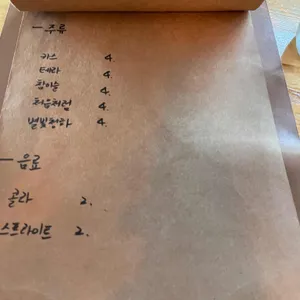 - 주류
카스 4.
테라 4.
참이슬 4.
처음처럼 4.
별빛청하 4.
- 음료
콜라 2.
스프라이트 2.